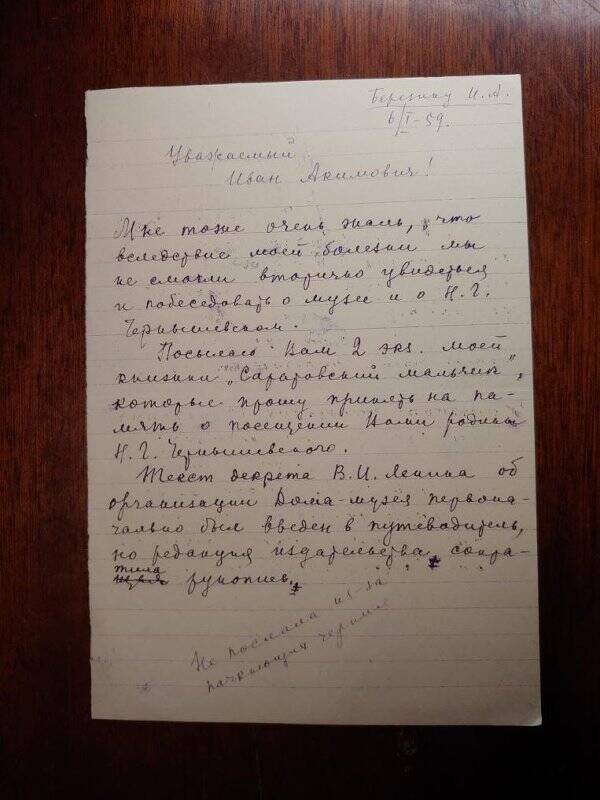 Березину И. А.
6/I-59.
Уважаемый
Иван Акимович!
Мне тоже очень жаль, что
вследствие моей болезни мы
не смогли вторично увидеться
и побеседовать о музее и о Н. Г.
Чернышевском.
Посылаю Вам 2 экз. моей
книжки „Саратовский мальчик",
которые прошу принять на па-
мять о посещении Вами родины
Н. Г. Чернышевского.
Текст декрета В. И. Ленина об
организации Дома-музея первона-
чально был введен в путеводитель,
но редакция издательства сокра-
тила
рукопись.
Не послала из-за
пачкающих чернил